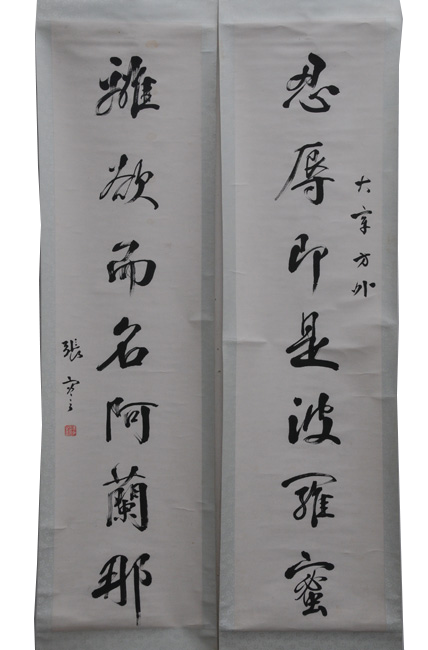 忍辱即是波羅蜜
大宰方外
離欲而名阿蘭那
張